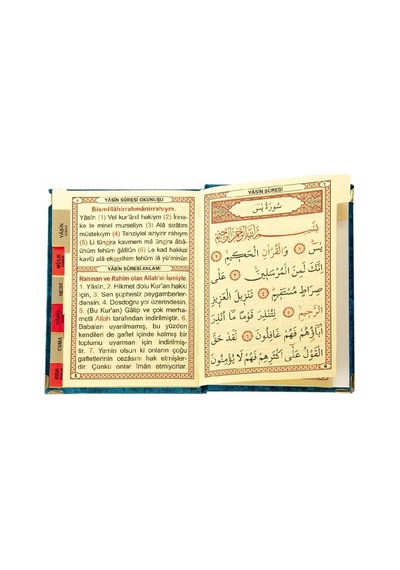 YÂSİN SÛRESİ OKUNUŞU
Bismillâhirrahmânirrahıym.
Yâsın (1) Vel kur'ânil hakıym (2) İnne-
ke le minel murseliyn (3) Alâ sırâtım
müstekıym (4) Tenziylel aziyzir rahıym
(5) Li tünzira kavmem mâ ünzira âbâ-
ühüm fehüm ğâfilûn (6) Le kad hakkal
kavlü alâ ekserihim fehüm lâ yü'minûn
YÂSİN SÛRESİ ANLAMI
Rahman ve Rahim olan Allah'ın İsmiyle.
1. Yâsîn, 2. Hikmet dolu Kur'an hakkı
için, 3. Sen şüphesiz peygamberler-
densin. 4. Dosdoğru yol üzerindesin.
5. (Bu Kur'an) Gâlip ve çok merha-
metli Allah tarafından indirilmiştir. 6.
Babaları uyarılmamış, bu yüzden
kendileri de gaflet içinde kalmış bir
toplumu uyarman için indirilmiş-
tir. 7. Yemin olsun ki onların çoğu
gafletlerinin cezâsını hak etmişler-
dir. Çünkü onlar îman etmiyorlar.
YÂSİN
MÜLK
NEBE
CUMA
YÂSİN SÛRESİ
سُورَةُ يٰسٓ
بِسْمِ اللّٰهِ الرَّحْمٰنِ الرَّحِيمِ
يٰسٓ ﴿١﴾ وَالْقُرْاٰنِ الْحَكِيمِ ﴿٢﴾
اِنَّكَ لَمِنَ الْمُرْسَلِينَ ﴿٣﴾ عَلٰى
صِرَاطٍ مُسْتَقِيمٍ ﴿٤﴾ تَنْزِيلَ الْعَزِيزِ
الرَّحِيمِ ﴿٥﴾ لِتُنْذِرَ قَوْمًا مَٓا اُنْذِرَ
اٰبَٓاؤُ۬هُمْ فَهُمْ غَافِلُونَ ﴿٦﴾ لَقَدْ حَقَّ
الْقَوْلُ عَلٰٓى اَكْثَرِهِمْ فَهُمْ لَا يُؤْمِنُونَ